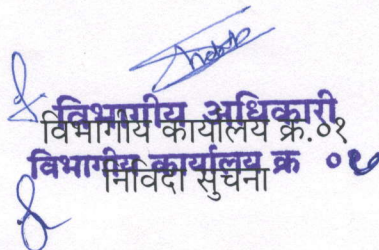 विभागीय अधिकारी
विभागीय कार्यालय क्र.०१
विभागीय कार्यालय क्र ०१
निविदा सुचना